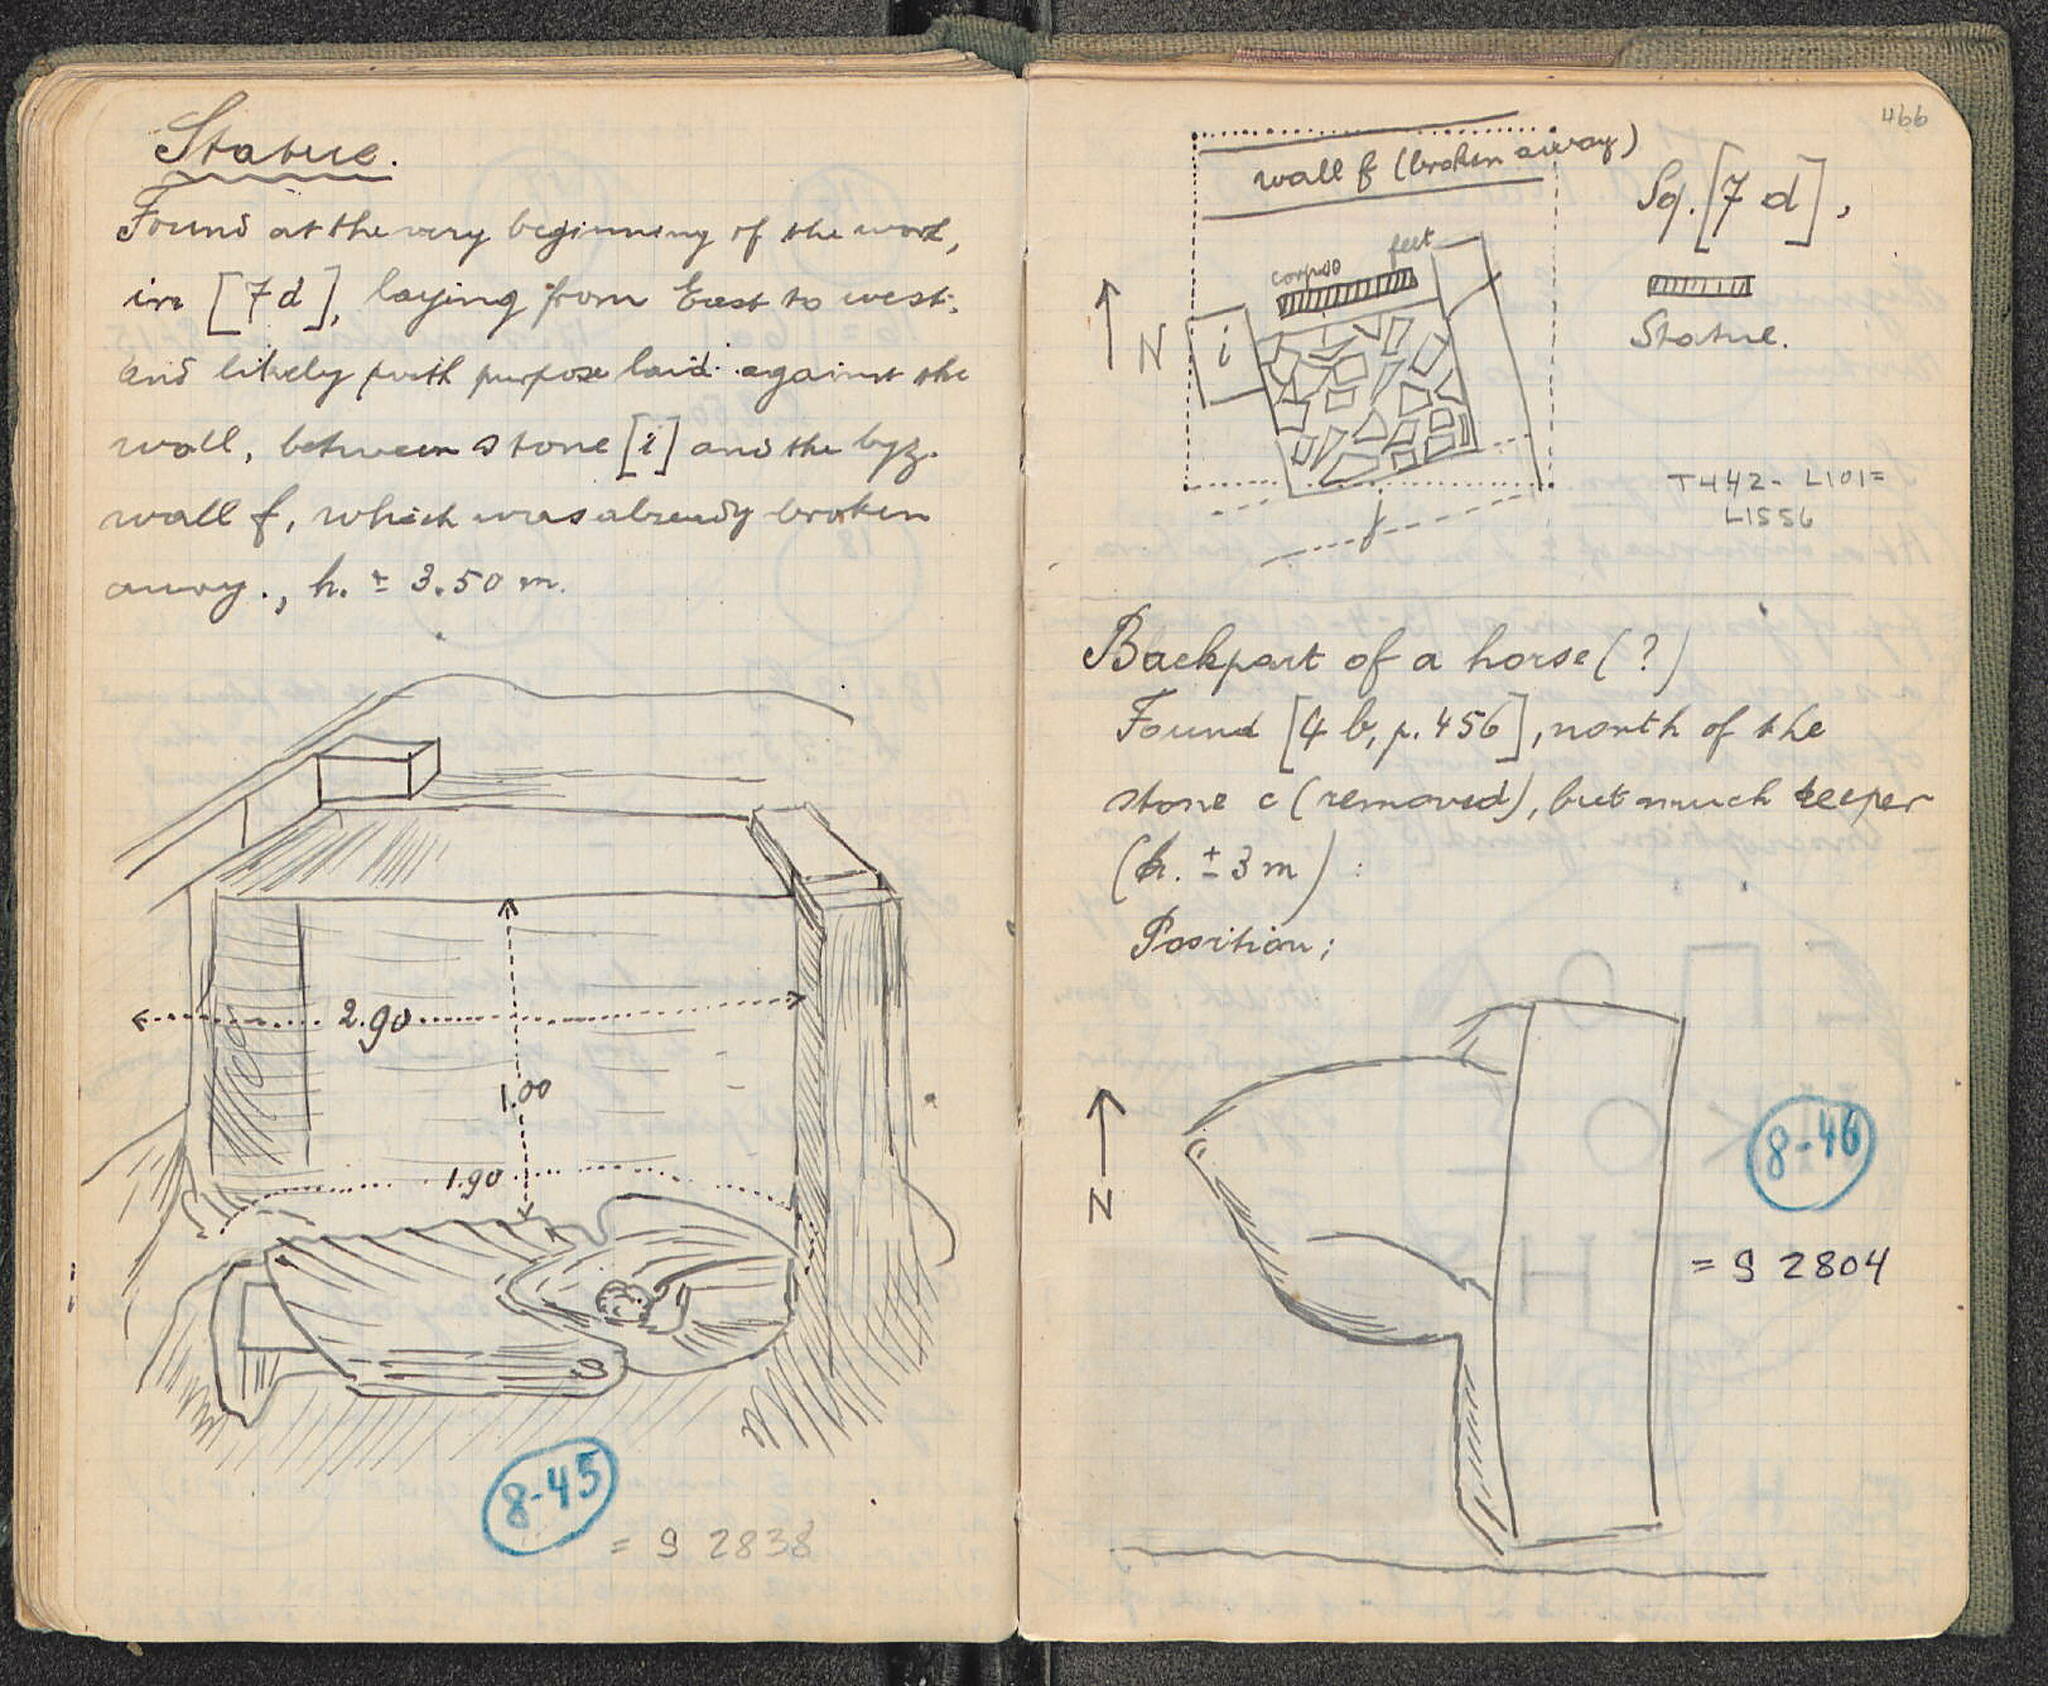 Statue.
Found at the very beginning of the work,
in [7d], laying from East to west.
and likely with purpose laid against the
wall, between stone [i] and the byz.
wall f, which was already broken
away., h. ± 3.50 m.
2.90
1.00
1.90
8-45
= S 2838
466
wall f (broken away)
Sq. [7 d],
feet
corpoo
N
i
Statue.
T442- L101=
L1556
f
Backpart of a horse (?)
Found [4 b, p. 456], north of the
stone c (removed), but much deeper
(h. ± 3 m) :
Position:
N
8-46
= S 2804